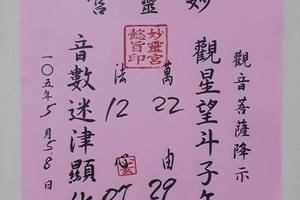 妙靈宮
觀音菩薩降示
觀星望斗子
萬 22 由 29
妙靈宮
懿旨印
法 12 心
音數迷津顯
一〇五年5月5.8日